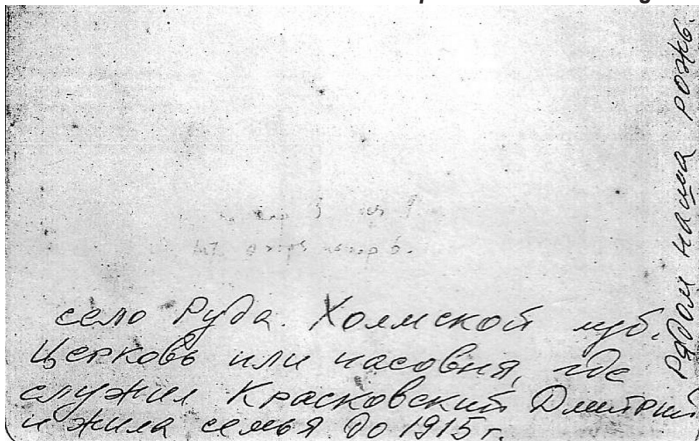 село Руда. Холмской губ.
Церковь или часовня, где
служил Красковский Дмитрий
и жила семья до 1915 г.
Рядом наша рожь.